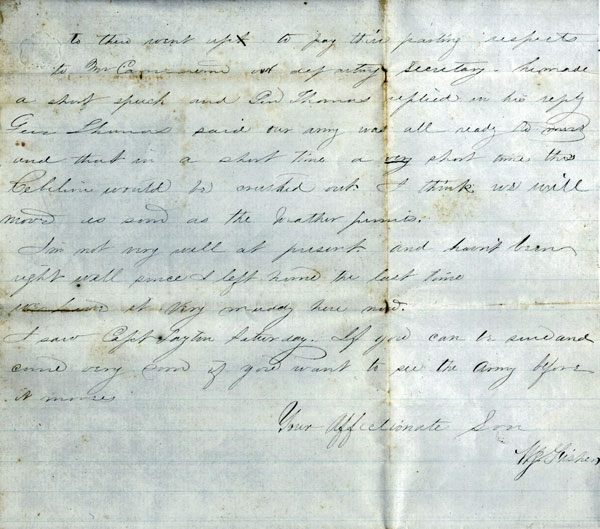 to there went up to pay their parting respects
to Mr Cameron our departing Secretary he made
a short speech and Gen Thomas replied in his reply
Gen Thomas said our army was all ready to move
and that in a short time a very short time the
Rebelion would be crushed out I think we will
move as soon as the Weather permits.
I'm not very well at present and havn't been
right well since I left home the last time
it very muddy here now.
I saw Capt Saturday. If you can be sure and
come very soon if you want to see the Army before
it moves
Your Affectionate Son
Fisher